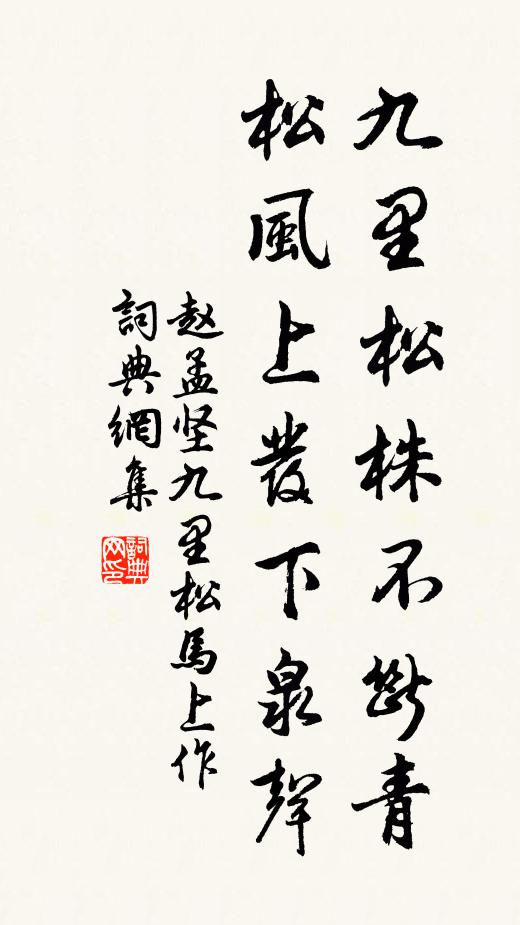 九里松株不斷青
松風上發下泉聲
赵孟坚九里松馬上作
詞典網集
詞典网印